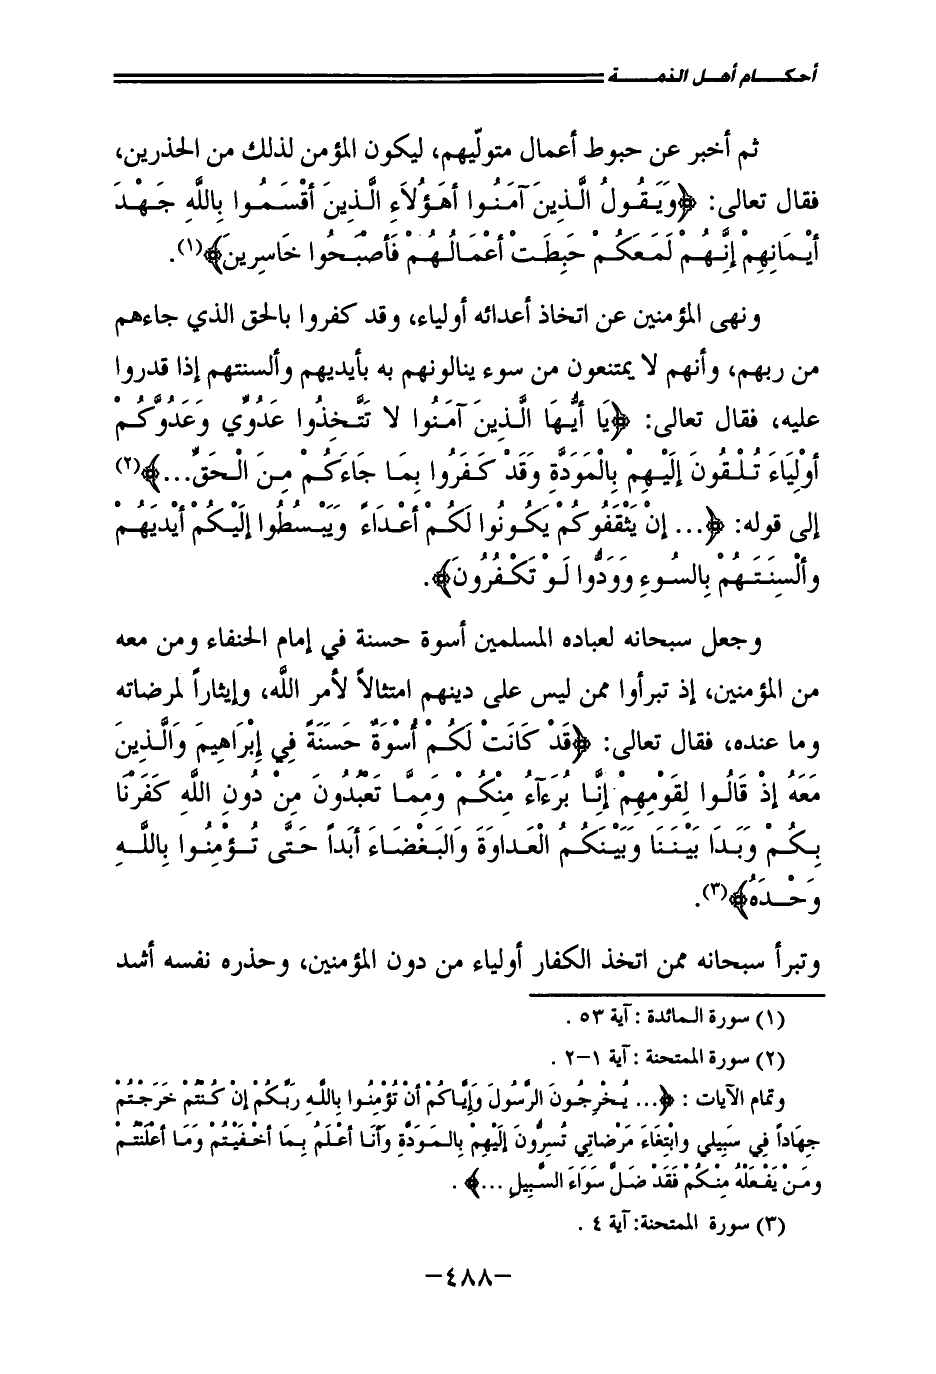 أحكـــــام أهــل الذمـــــة
ثم أخبر عن حبوط أعمال متولّيهم، ليكون المؤمن لذلك من الحذرين،
فقال تعالى: ﴿وَيَقُولُ الَّذِينَ آمَنُوا أَهَؤُلاَءِ الَّذِينَ أَقْسَمُوا بِاللَّهِ جَهْدَ
أَيْمَانِهِمْ إِنَّهُمْ لَمَعَكُمْ حَبِطَتْ أَعْمَالُهُمْ فَأَصْبَحُوا خَاسِرِينَ﴾(١).
ونهى المؤمنين عن اتخاذ أعدائه أولياء، وقد كفروا بالحق الذي جاءهم
من ربهم، وأنهم لا يمتنعون من سوء ينالونهم به بأيديهم وألسنتهم إذا قدروا
عليه، فقال تعالى: ﴿يَا أَيُّهَا الَّذِينَ آمَنُوا لا تَتَّخِذُوا عَدُوِّي وَعَدُوَّكُمْ
أَوْلِيَاءَ تُلْقُونَ إِلَيْهِمْ بِالْمَوَدَّةِ وَقَدْ كَفَرُوا بِمَا جَاءَكُمْ مِنَ الْحَقِّ...﴾(٢)
إلى قوله: ﴿... إِنْ يَثْقَفُوكُمْ يَكُونُوا لَكُمْ أَعْدَاءً وَيَبْسُطُوا إِلَيْكُمْ أَيْدِيَهُمْ
وَأَلْسِنَتَهُمْ بِالسُوءِ وَوَدُّوا لَوْ تَكْفُرُونَ﴾.
وجعل سبحانه لعباده المسلمين أسوة حسنة في إمام الحنفاء ومن معه
من المؤمنين، إذ تبرأوا ممن ليس على دينهم امتثالاً لأمر اللَّه، وإيثاراً لمرضاته
وما عنده، فقال تعالى: ﴿قَدْ كَانَتْ لَكُمْ أُسْوَةٌ حَسَنَةً فِي إِبْرَاهِيمَ وَالَّذِينَ
مَعَهُ إِذْ قَالُوا لِقَوْمِهِمْ إِنَّا بُرَءَآءُ مِنْكُمْ وَمِمَّا تَعْبُدُونَ مِنْ دُونِ اللَّهِ كَفَرْنَا
بِكُمْ وَبَدَا بَيْنَنَا وَبَيْنَكُمُ الْعَداوَةَ وَالبَغْضَاءَ أَبَداً حَتَّى تُؤْمِنُوا بِاللَّهِ
وَحْدَهُ﴾(٣).
وتبرأ سبحانه ممن اتخذ الكفار أولياء من دون المؤمنين، وحذره نفسه أشد
(١) سورة المائدة : آية ٥٣ .
(٢) سورة الممتحنة : آية ١-٢ .
وتمام الآيات : ﴿... يُخْرِجُونَ الرَّسُولَ وَإِيَّاكُمْ أَنْ تُؤْمِنُوا بِاللَّهِ رَبِّكُمْ إِنْ كُنْتُمْ خَرَجْتُمْ
جِهَاداً فِي سَبِيلِي وابْتِغَاءَ مَرْضَاتِي تُسِرُّونَ إِلَيْهِمْ بِالمَوَدَّةِ وَأَنَا أَعْلَمُ بِمَا أَخْفَيْتُمْ وَمَا أَعْلَنْتُمْ
وَمَنْ يَفْعَلْهُ مِنْكُمْ فَقَدْ ضَلَّ سَوَاءَ السَّبِيلِ ...﴾ .
(٣) سورة الممتحنة: آية ٤ .
-٤٨٨-